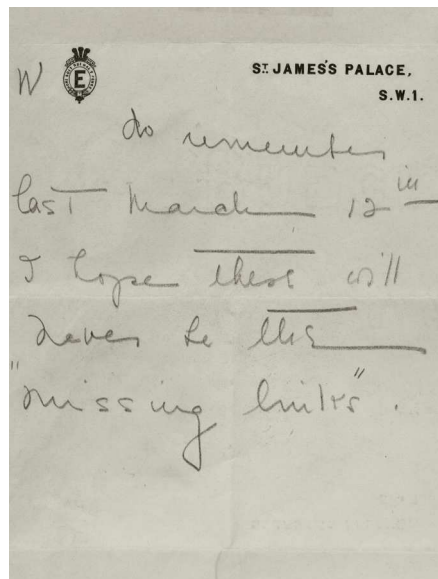 W
E
ST. JAMES'S PALACE,
S.W.1.
do remember
last March 12
I hope these will
never be the
"missing links".